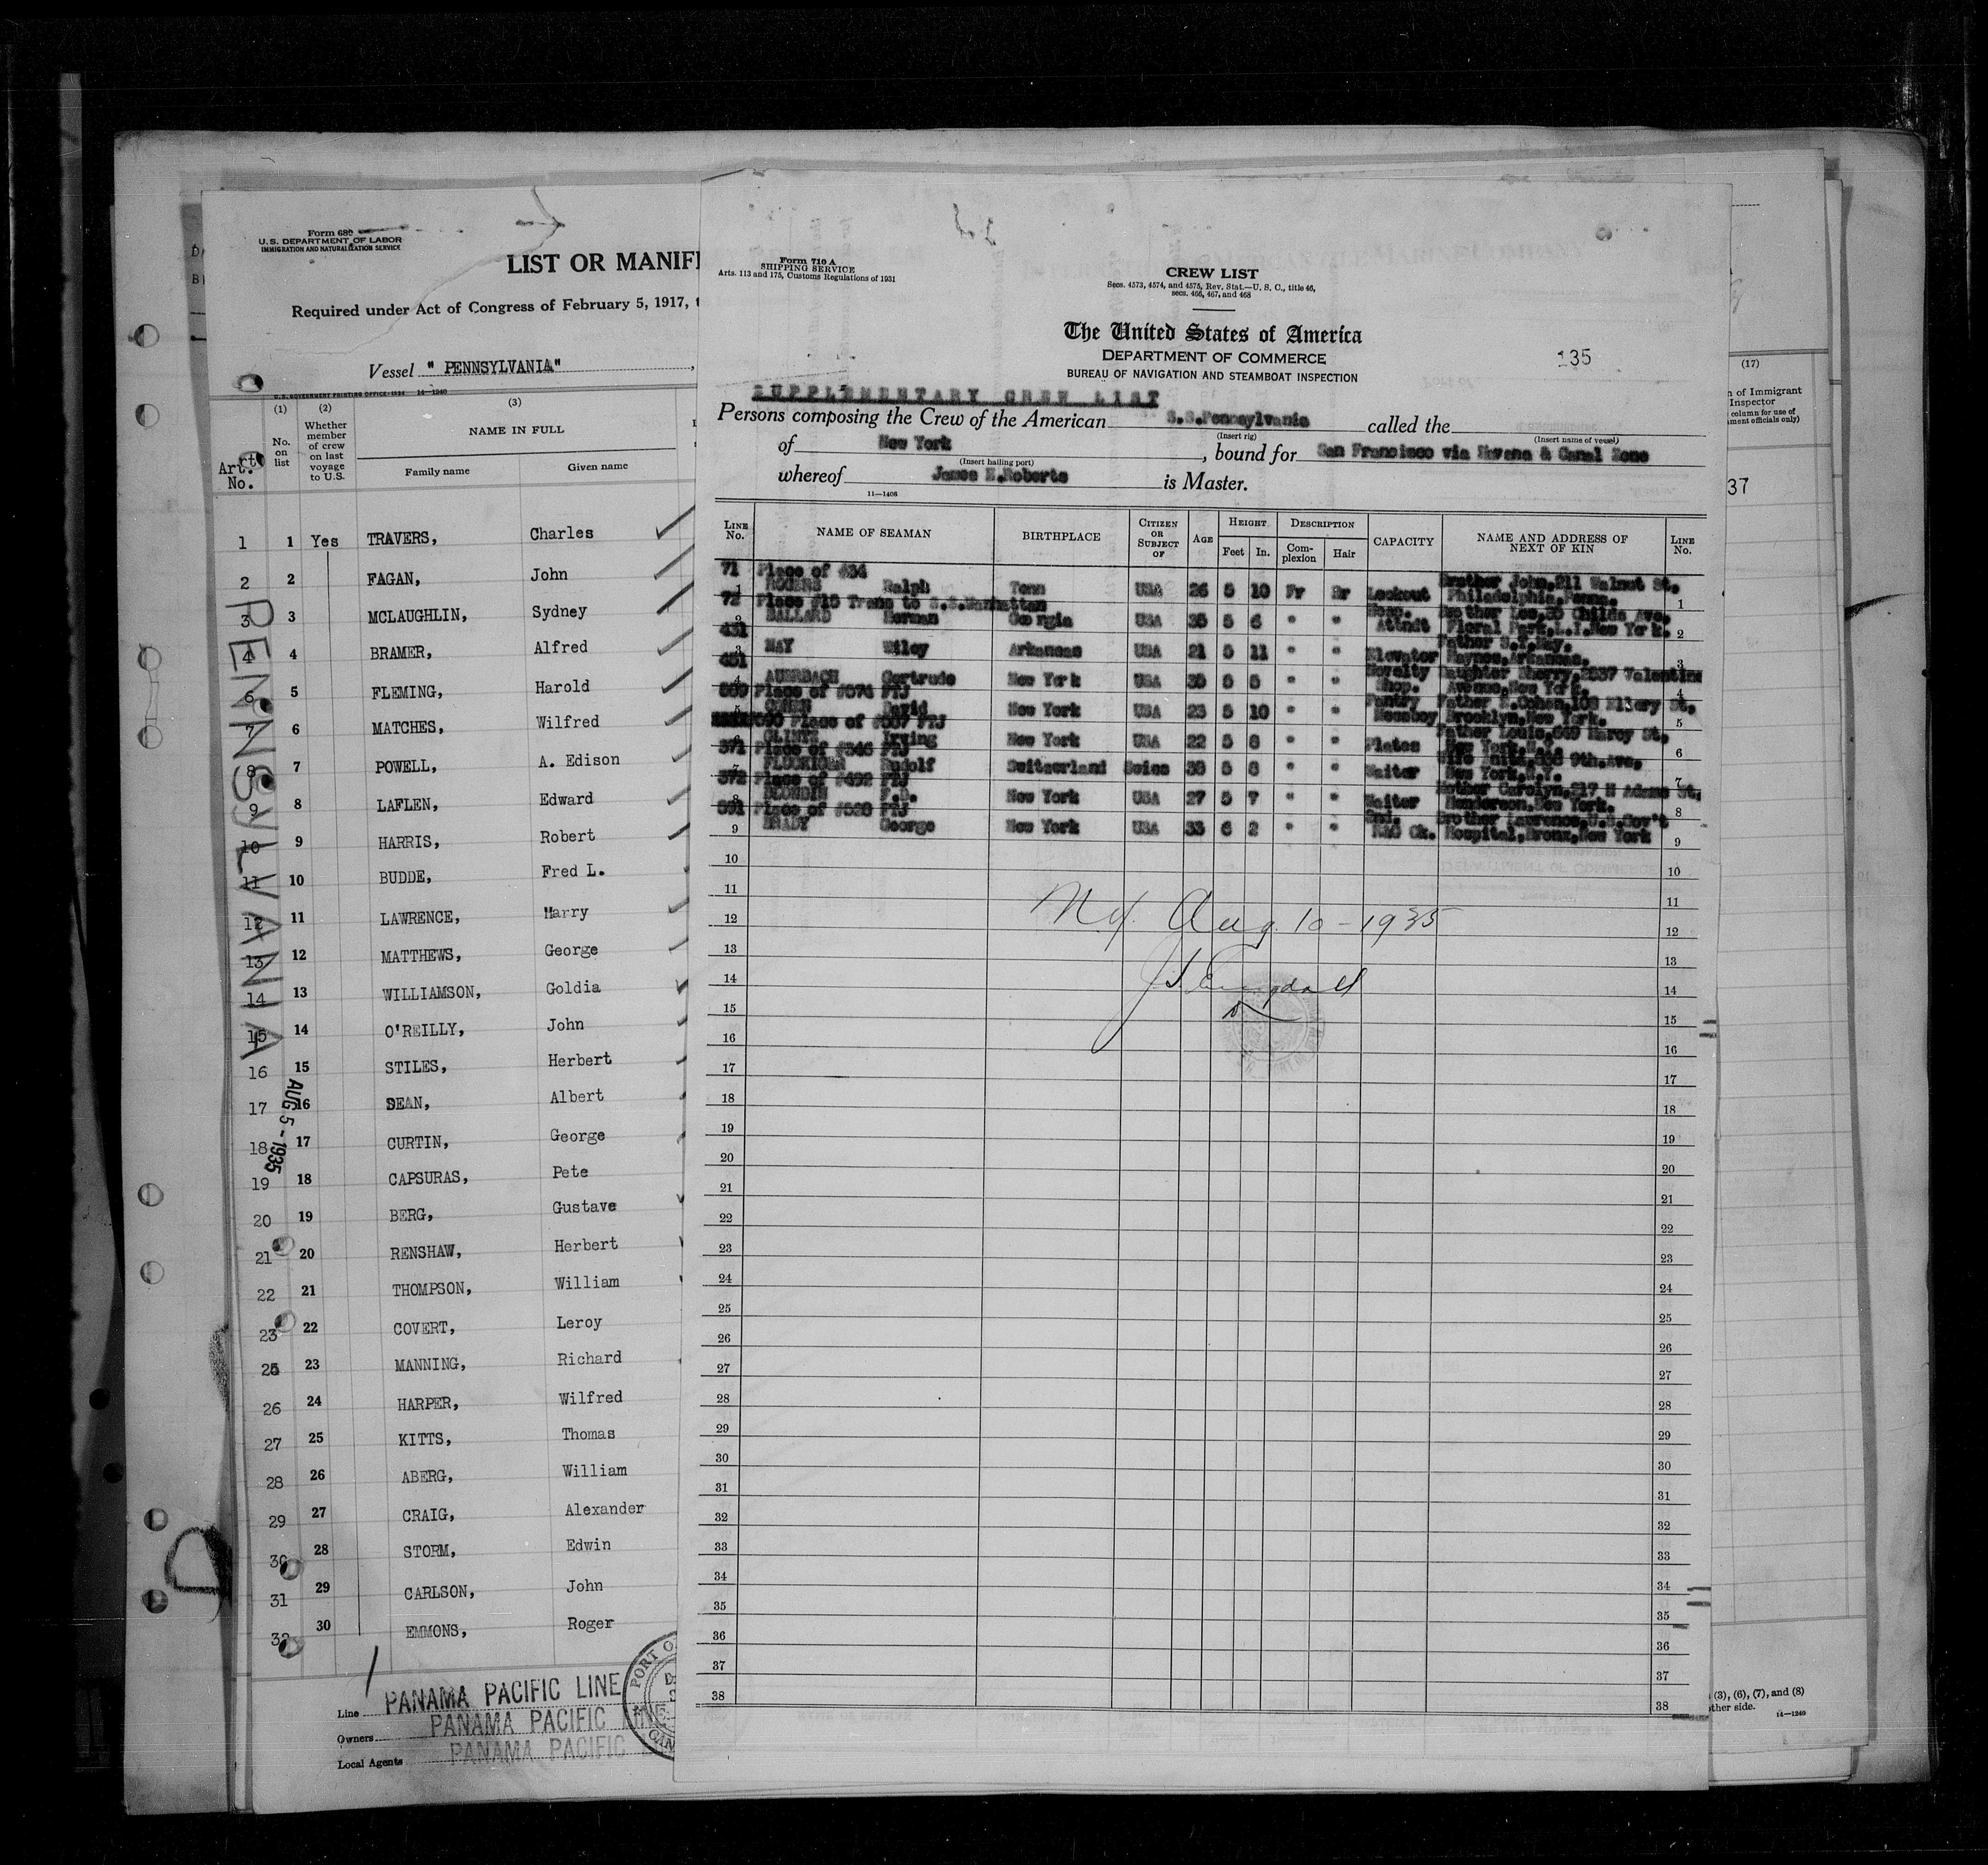 Form 680
U.S. DEPARTMENT OF LABOR
IMMIGRATION AND NATURALIZATION SERVICE
LIST OR MANIF
Required under Act of Congress of February 5, 1917, t
Vessel "PENNSYLVANIA"
U.S. GOVERNMENT PRINTING OFFICE: 1934 14—1240
(1) (2) (3)
Art. No.
No. on list
Whether member of crew on last voyage to U.S.
NAME IN FULL
Family name Given name
1 1 Yes TRAVERS, Charles
2 2 FAGAN, John
3 3 MCLAUGHLIN, Sydney
4 4 BRAMER, Alfred
6 5 FLEMING, Harold
7 6 MATCHES, Wilfred
8 7 POWELL, A. Edison
9 8 LAFLEN, Edward
10 9 HARRIS, Robert
11 10 BUDDE, Fred L.
12 11 LAWRENCE, Harry
13 12 MATTHEWS, George
14 13 WILLIAMSON, Goldia
15 14 O'REILLY, John
16 15 STILES, Herbert
17 16 DEAN, Albert
18 17 CURTIN, George
19 18 CAPSURAS, Pete
20 19 BERG, Gustave
21 20 RENSHAW, Herbert
22 21 THOMPSON, William
23 22 COVERT, Leroy
23 MANNING, Richard
26 24 HARPER, Wilfred
27 25 KITTS, Thomas
28 26 ABERG, William
29 27 CRAIG, Alexander
30 28 STORM, Edwin
31 29 CARLSON, John
30 EMMONS, Roger
PENNSYLVANIA
AUG 5 - 1935
Line PANAMA PACIFIC LINE
Owners PANAMA PACIFIC LINE
Local Agents PANAMA PACIFIC
PORT O
Form 710 A
SHIPPING SERVICE
Arts. 113 and 175, Customs Regulations of 1931
CREW LIST
Secs. 4573, 4574, and 4575, Rev. Stat.—U. S. C., title 46,
secs. 466, 467, and 468
The United States of America
DEPARTMENT OF COMMERCE
BUREAU OF NAVIGATION AND STEAMBOAT INSPECTION
135
SUPPLEMENTARY CREW LIST
Persons composing the Crew of the American S.S.Pennsylvania called the
(Insert rig) (Insert name of vessel)
of New York, bound for San Francisco via Havana & Canal Zone
(Insert hailing port)
whereof James E.Roberts is Master.
11—1406
LINE No. NAME OF SEAMAN BIRTHPLACE CITIZEN OR SUBJECT OF AGE HEIGHT Feet In. DESCRIPTION Complexion Hair CAPACITY NAME AND ADDRESS OF NEXT OF KIN LINE No.
71 Place of #34
1 ROGERS Ralph Tenn USA 26 5 10 Fr Br Lookout Brother John,211 Walnut St, Philadelphia,Penna. 1
72 Place #15 Trans to S.S.Manhattan
2 BALLARD Herman Georgia USA 35 5 6 " " Hosp. Attndt Brother Lee,35 Childs Ave, Floral Park,L.I.New York. 2
431
3 MAY Wiley Arkansas USA 21 5 11 " " Elevator Father S.T.May, Haynes,Arkansas. 3
451
4 AUERBACH Gertrude New York USA 35 5 5 " " Novelty Shop. Daughter Sherry,2537 Valentine Avenue,New York. 4
Place of #574 FTJ
5 COHEN David New York USA 23 5 10 " " Pantry Messboy Father Cohen,108 Ellery St, Brooklyn,New York. 5
Place of #587 FTJ
6 Irving New York USA 22 5 8 " " Plates Father Louis,649 Marcy St, New York,N.Y. 6
371 Place of #346 FTJ
7 FLUCKIGER Rudolf Switzerland Swiss 38 5 8 " " Waiter Wife Anita,338 9th.Ave, New York,N.Y. 7
372 Place of #492 FTJ
8 BLONDIN F.D. New York USA 27 5 7 " " Waiter Mother Carolyn,217 N Adams St, Henderson,New York. 8
591 Place of #528 FTJ
9 BRADY George New York USA 33 6 2 " " Ck. Brother Lawrence,U.S.Gov't Hospital,Bronx,New York 9
10 10
11 11
12 12
13 13
14 14
15 15
16 16
17 17
18 18
19 19
20 20
21 21
22 22
23 23
24 24
25 25
26 26
27 27
28 28
29 29
30 30
31 31
32 32
33 33
34 34
35 35
36 36
37 37
38 38
Aug. 10 - 1935
(17)
n of Immigrant
Inspector
column for use of
ment officials only)
37
(3), (6), (7), and (8)
ther side.
14—1240